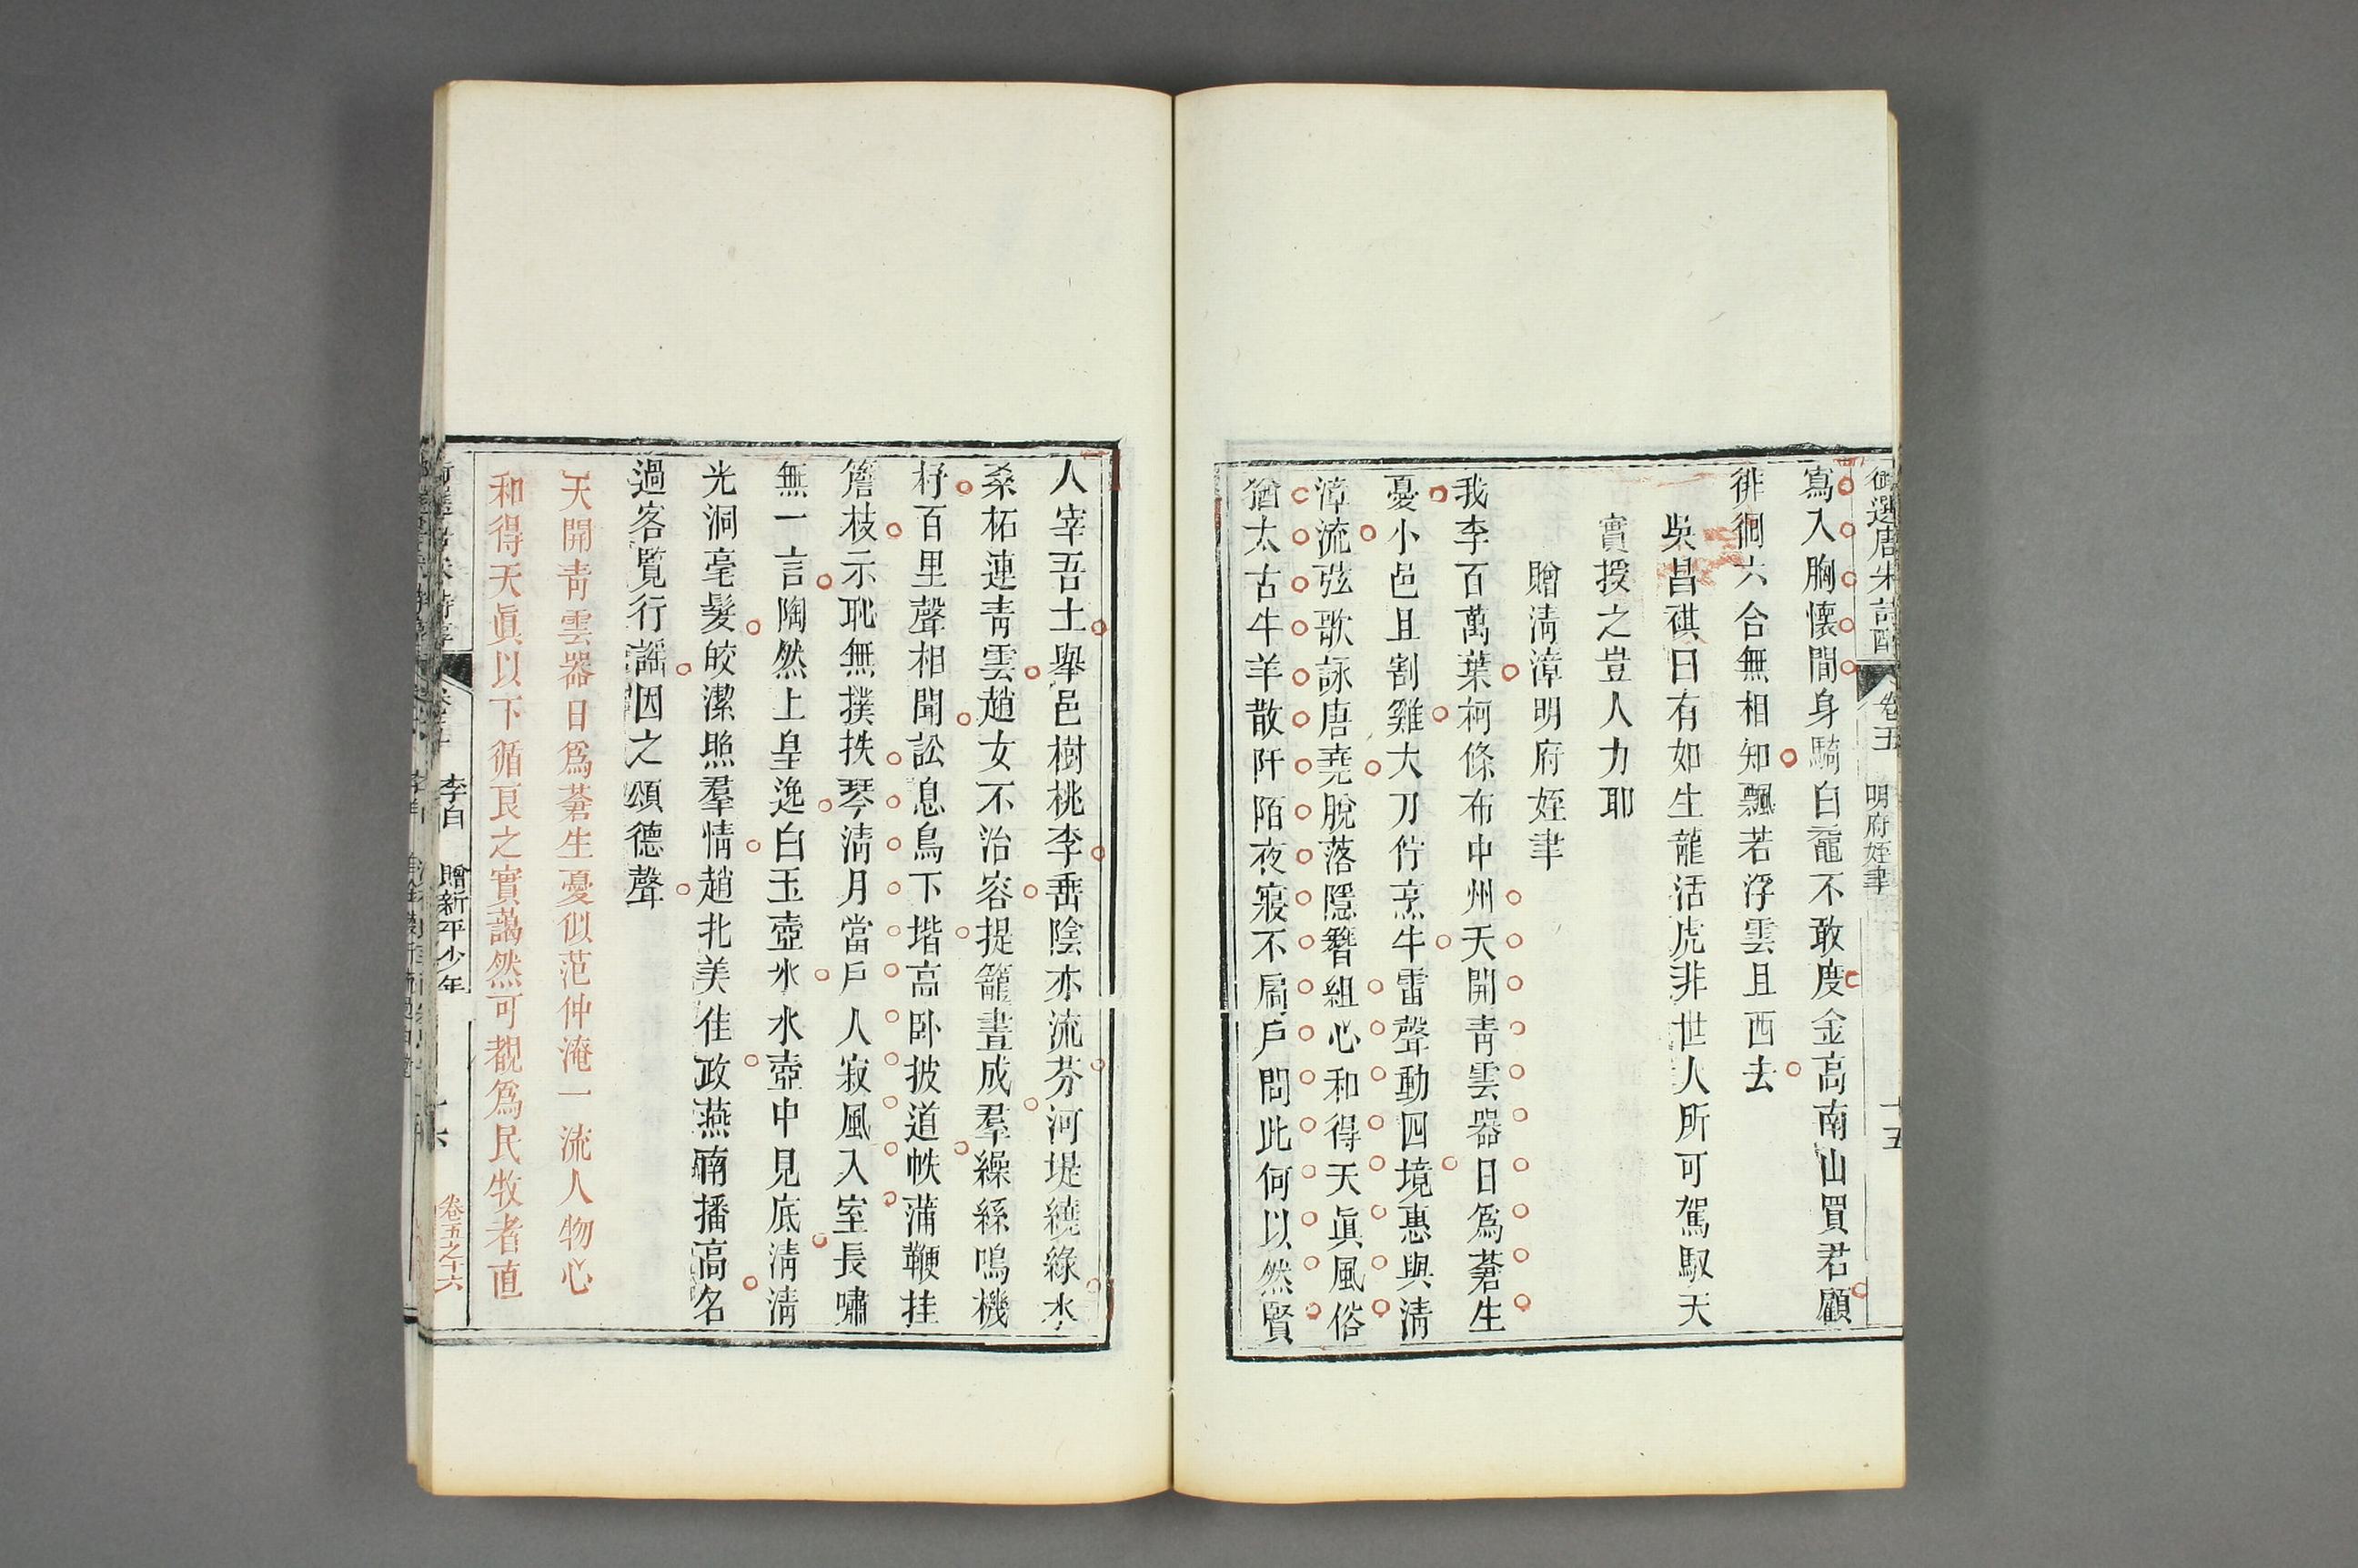 御選唐宋詩醇
卷五
明府姪聿
十五
寫入胸懷間身騎白黿不敢度金高南山買君顧
徘徊六合無相知飄若浮雲且西去
吳昌祺曰有如生龍活虎非世人所可駕馭天
實授之豈人力耶
贈清漳明府姪聿
我李百萬葉柯條布中州天開青雲器日爲蒼生
憂小邑且割雞大刀佇烹牛雷聲動四境惠與清
漳流弦歌詠唐堯脫落隱簪組心和得天眞風俗
猶太古牛羊散阡陌夜寢不扃戶問此何以然賢
人宰吾土舉邑樹桃李垂陰亦流芬河堤繞綠水
桑柘連青雲趙女不冶容提籠晝成羣繰絲鳴機
杼百里聲相聞訟息鳥下堦高卧披道帙蒲鞭挂
簷枝示恥無撲抶琴清月當戶人寂風入室長嘯
無一言陶然上皇逸白玉壺氷水壺中見底清清
光洞毫髮皎潔照羣情趙北美佳政燕南播高名
過客覽行謡因之頌德聲
天開青雲器日爲蒼生憂似范仲淹一流人物心
和得天眞以下循良之實藹然可覩爲民牧者直
李白
贈新平少年
卷五之十六